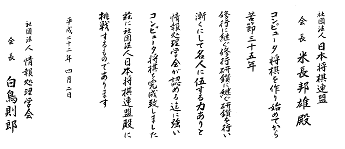 社団法人 日本将棋連盟
会長 米長邦雄 殿
コンピュータ将棋を作り始めてから
苦節三十五年
修行に継ぐ修行 研鑽に継ぐ研鑽を行い
漸くにして名人に伍する力ありと
情報処理学会が認める迄に強い
コンピュータ将棋を完成致しました
茲に社団法人日本将棋連盟殿に
挑戦するものであります
平成二十二年 四月二日
社団法人 情報処理学会
会長 白鳥則郎